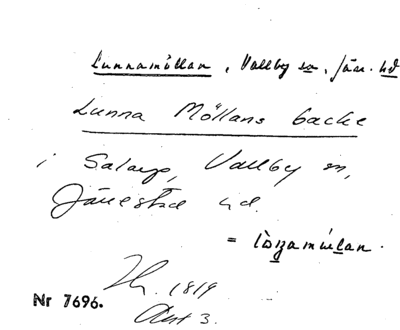 Lunnamöllan, Vallby sn, Järr. hd
Lunna Möllans backe
i Salarp, Vallby sn,
Järrestad hd.
=
Th. 1819
Akt 3.
Nr 7696.